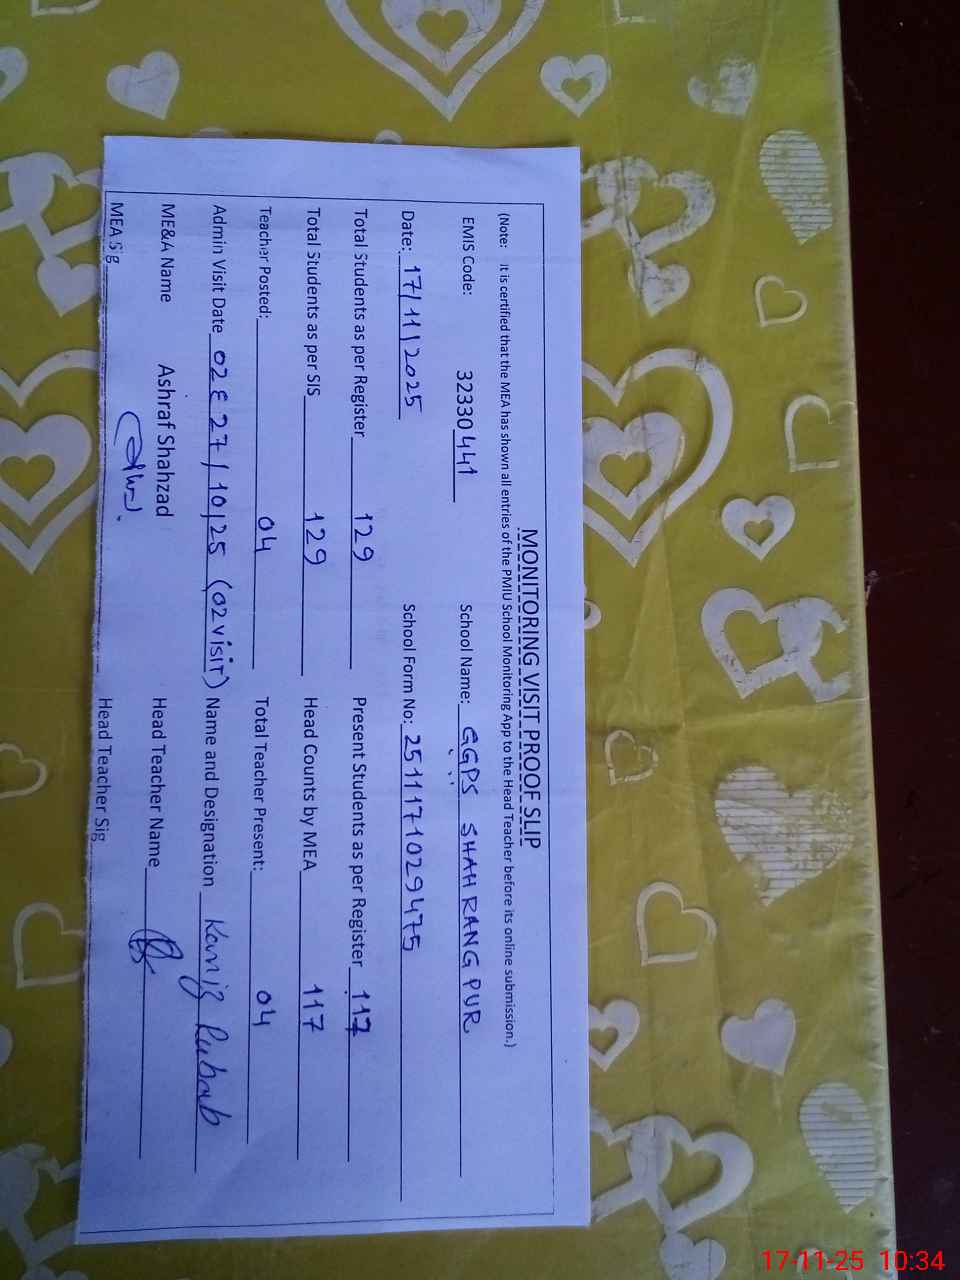 MONITORING VISIT PROOF SLIP
(Note: It is certified that the MEA has shown all entries of the PMIU School Monitoring App to the Head Teacher before its online submission.)
EMIS Code: 32330441 School Name: GGPS SHAH RANG PUR
Date: 17/11/2025 School Form No: 2511171029475
Total Students as per Register 129 Present Students as per Register 117
Total Students as per SIS 129 Head Counts by MEA 117
Teacher Posted: 04 Total Teacher Present: 04
Admin Visit Date 02 & 27/10/25 (02 visit) Name and Designation Kaniz Rubab
ME&A Name Ashraf Shahzad Head Teacher Name
MEA Sig Head Teacher Sig
17-11-25 10:34